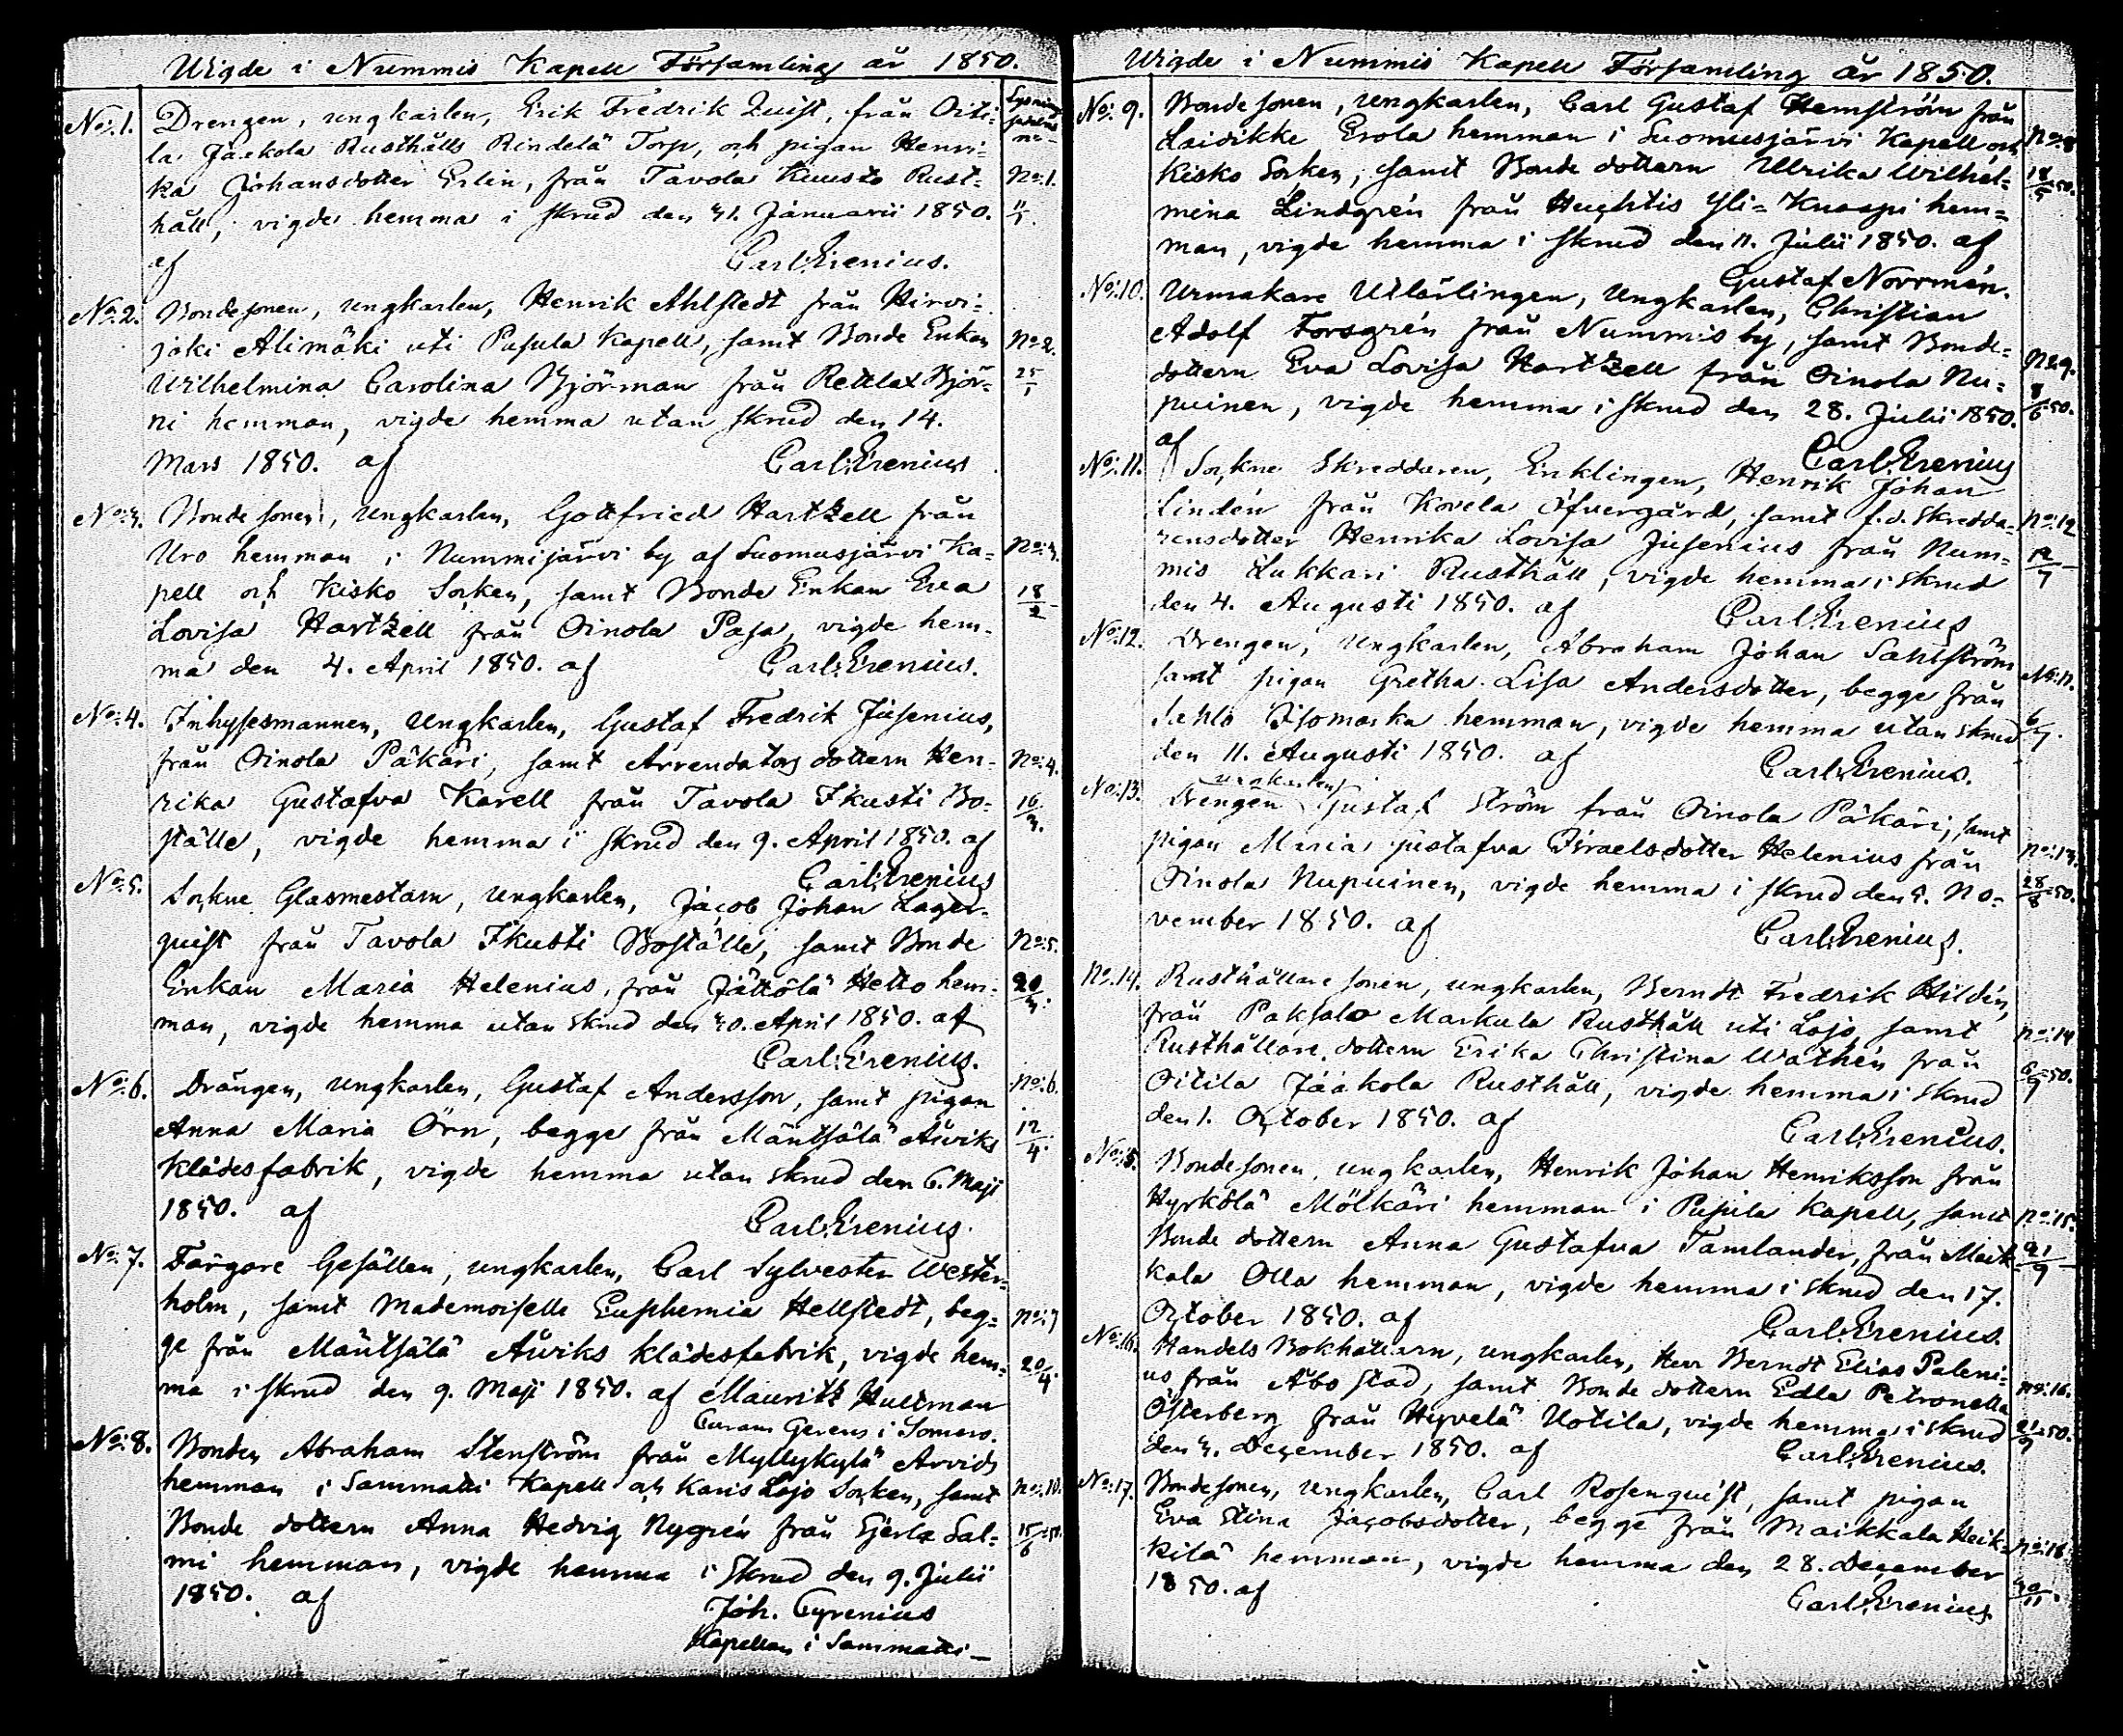 Wigde i Nummis Kapell Församling år 1850.
Lysnings sedeln no
No: 1. Drengen, ungkarlen, Erik Fredrik Quist, från Oiti-
la Jaakola Rusthålls Rindelä Torp, och pigan Henri-
ka Johansdotter Erlin, från Tavola Kuusto Rust- No: 1.
håll, vigde hemma i skrud den 31. Januarii 1850. 11/1.
af Carl Erenius.
No: 2. Bondesonen, ungkarlen, Henrik Ahlstedt från Hirvi-
joki Alimäki uti Pusula Kapell, samt Bonde Enkan No: 2.
Wilhelmina Carolina Björman från Retlax Björ- 25/1
ni hemman, vigde hemma utan skrud den 14.
Mars 1850. af Carl Erenius
No: 3. Bonde sonen, ungkarlen, Gottfried Hartzell från
Uro hemman i Nummijärvi by af Suomusjärvi Ka- No: 3.
pell och Kisko Socken, samt Bonde Enkan Eva 18/2
Lovisa Hartzell från Oinola Pasa, vigde hem-
ma den 4. April 1850. af Carl Erenius.
No: 4. Inhysesmannen, ungkarlen, Gustaf Fredrik Jusenius,
från Oinola Päkäri, samt Arrendators dottern Hen- No: 4.
rika Gustafva Karell från Tavola Ikusti Bo- 16/3.
ställe, vigde hemma i skrud den 9. April 1850. af
Carl Erenius
No: 5. Sockne Glasmestarn, ungkarlen, Jacob Johan Lager-
quist från Tavola Ikusti Boställe, samt Bonde No: 5.
Enkan Maria Helenius, från Jättölä Hetto hem- 20/3.
man, vigde hemma utan skrud den 30. April 1850. af
Carl Erenius.
No: 6. Drängen, ungkarlen, Gustaf Andersson, samt pigan No: 6.
Anna Maria Örn, begge från Mäntsälä Åviks 12/4.
klädesfabrik, vigde hemma utan skrud den 6. Maji
1850. af Carl Erenius.
No: 7. Färgare Gesällen, ungkarlen, Carl Sylvester Wester-
holm, samt Mademoiselle Euphemia Hellstedt, beg- No: 7
ge från Mäntsälä Åviks klädesfabrik, vigde hem- 20/4.
ma i skrud den 9. Maji 1850. af Mauritz Hultman
Curam Gerens i Somero.
No: 8. Bonden Abraham Stenström från Myllykylä Arvids
hemman i Sammatti Kapell och Karis Lojo Socken, samt No: 10.
Bonde dottern Anna Hedvig Nygrén från Gerla Sal- 15/6 50.
mi hemman, vigde hemma i skrud den 9. Julii
1850. af
Joh. Cyrenius
Kapellan i Sammatti
Wigde i Nummis Kapell Församling år 1850.
No: 9. Bonde sonen, ungkarlen, Carl Gustaf Hemström från
Laidikke Erola hemman i Suomusjärvi Kapell och No: 8
Kisko Socken, samt Bonde dottern Ulrika Wilhel- 18/5 50.
mina Lindgrén från Huhtis Yli-Knaapi hem-
man, vigde hemma i skrud den 11. Julii 1850. af
Gustaf Norrmén.
No: 10. Urmakare Utlärlingen, Ungkarlen, Christian
Adolf Forsgrén från Nummis by, samt Bonde-
dottern Eva Lovisa Hartzell från Oinola Nu- No: 9.
puinen, vigde hemma i skrud den 28. Julii 1850. 8/6 50.
af Carl Erenius
No: 11. Sockne Skreddaren, Enklingen, Henrik Johan
Lindén från Kovela Öfvergård, samt f.d. Skredda- No: 12
rensdotter Henrika Lovisa Jusenius från Num- 12/7
mis Lukkari Rusthåll, vigde hemma i skrud
den 4. Augusti 1850. af Carl Erenius
No: 12. Drengen, Ungkarlen, Abraham Johan Sahlström
samt pigan Gretha Lisa Andersdotter, begge från No: 11.
Sahlo Isomaska hemman, vigde hemma utan skrud 6/7.
den 11. Augusti 1850. af Carl Erenius.
No: 13. Drengen ungkarlen Gustaf Ström från Oinola Päkäri, samt
pigan Maria Gustafva Israelsdotter Helenius från No: 13.
Oinola Nupuinen, vigde hemma i skrud den 5. No- 28/8 50.
vember 1850. af Carl Erenius.
No: 14. Rusthållare sonen, ungkarlen, Berndt Fredrik Hildén,
från Paksalo Markula Rusthåll uti Lojo, samt No: 14
Rusthållare dottern Erika Christina Wathén från 6/9 50.
Oitila Jaakola Rusthåll, vigde hemma i skrud
den 1. October 1850. af Carl Erenius.
No: 15. Bondesonen, ungkarlen, Henrik Johan Henriksson från
Hyrkölä Mölkäri hemman i Pusula Kapell, samt No: 15.
Bonde dottern Anna Gustafva Tamlander, från Maik- 21/9
kala Olla hemman, vigde hemma i skrud den 17.
October 1850. af Carl Erenius.
No: 16. Handels Bokhållarn, ungkarlen, Herr Berndt Elias Paleni-
us från Åbo stad, samt Bonde dottern Edla Petronella No: 16.
Österberg från Hyvelä Uotila, vigde hemma i skrud 21/9 50.
den 3. December 1850. af Carl Erenius.
No: 17. Bondesonen, Ungkarlen, Carl Rosenquist, samt pigan
Eva Stina Jacobsdotter, begge från Maikkala Heik- No: 18
kilä hemman, vigde hemma den 28. December 30/11.
1850. af Carl Erenius